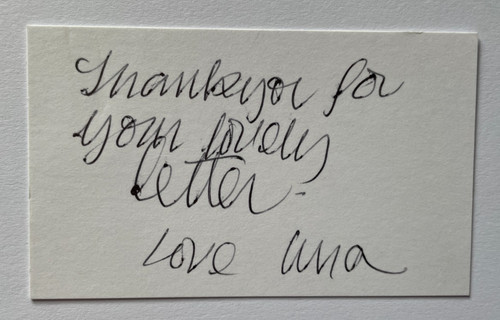 Thankyou for
your lovely
letter -
Love Anna